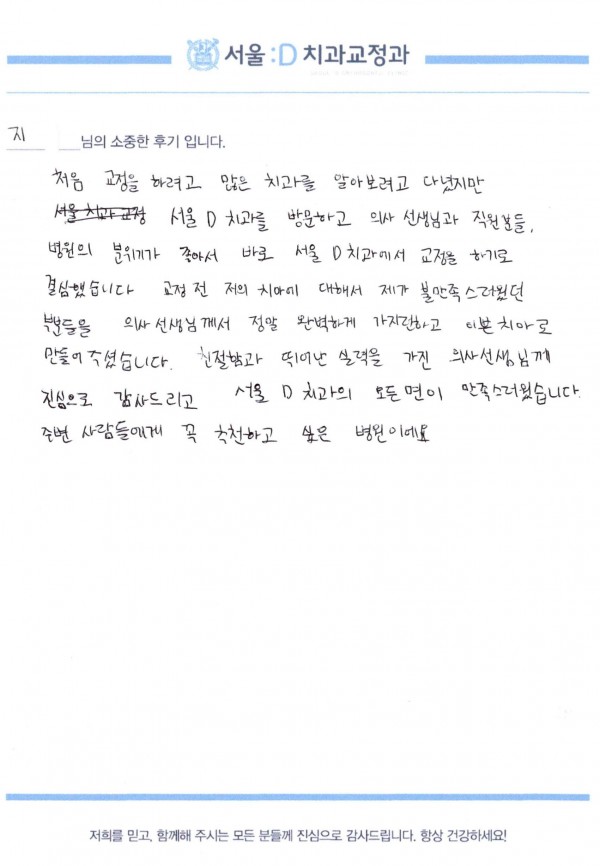 서울:D 치과교정과
지 님의 소중한 후기 입니다.
처음 교정을 하려고 많은 치과를 알아보려고 다녔지만
서울 치과 교정 서울 D 치과를 방문하고 의사 선생님과 직원분들,
병원의 분위기가 좋아서 바로 서울 D치과에서 교정을 하기로
결심했습니다 교정 전 저의 치아에 대해서 제가 불만족스러웠던
부분들을 의사선생님께서 정말 완벽하게 가지런하고 이쁜 치아로
만들어 주셨습니다. 친절함과 뛰어난 실력을 가진 의사선생님께
진심으로 감사드리고 서울 D 치과의 모든면이 만족스러웠습니다.
주변 사람들에게 꼭 추천하고 싶은 병원이에요
저희를 믿고, 함께해 주시는 모든 분들께 진심으로 감사드립니다. 항상 건강하세요!